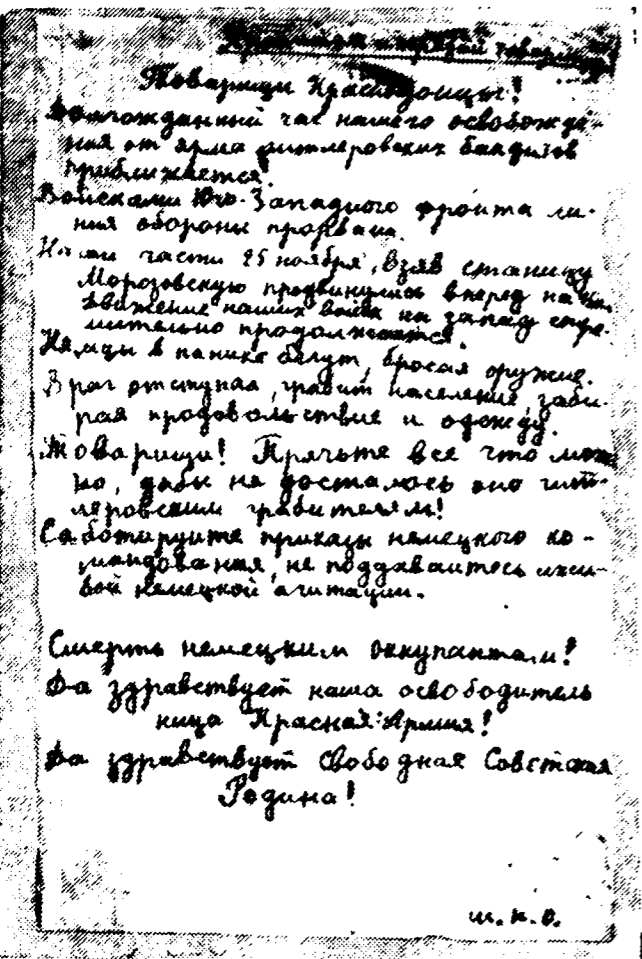 Прочитай и передай товарищу
Товарищи Краснодонцы!
Долгожданный час нашего освобожде-
ния от ярма гитлеровских бандитов
приближается!
Войсками Юго-Западного фронта ли-
ния обороны прорвана.
Наши части 25 ноября, взяв станицу
Морозовскую продвинулись вперед на
Движение наших войск на запад стре-
мительно продолжается.
Немцы в панике бегут, бросая оружие.
Враг отступая, грабит население, заби-
рая продовольствие и одежду.
Товарищи! Прячьте все что мож-
но, дабы не досталось оно гит-
леровским грабителям!
Саботируйте приказы немецкого ко-
мандования, не поддавайтесь лжи-
вой немецкой агитации.
Смерть немецким оккупантам!
Да здравствует наша освободитель
ница Красная Армия!
Да здравствует свободная Советская
Родина!